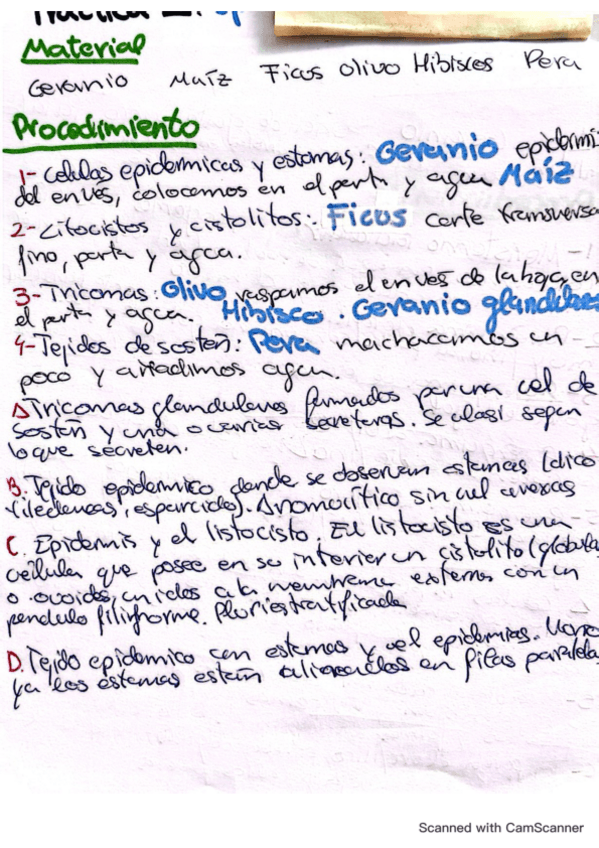 Práctica
Material
Geranio Maíz Ficus Olivo Hibiscos Pera
Procedimiento
1- Celulas epidermicas y estomas: Geranio epidermi
del envés, colocamos en el porta y agua Maíz
2- Litocistos y cistolitos: Ficus corte transversa
fino, porta y agua.
3- Tricomas: Olivo raspamos el envés de la hoja, en
el porta y agua. Hibisco. Geranio glandulares
4- Tejidos de sosten: Pera machacamos un
poco y añadimos agua.
A Tricomas glandulares formados por una cel de
sosten y una o varias secretoras. Se clasi segun
lo que secreten.
B. Tejido epidermico donde se observan estomas (dico
esparcidos). Anomocítico sin cel anexas
C. Epidermis y el listocisto. El listocisto es una
célula que posee en su interior un cistolito (globula
o ovoides, unidos a la membrana externa con un
pendulo filiforme. Pluriestratificada
D. Tejido epidermico con estomas y cel epidermias.
ya los estomas están alineados en filas paralela
Scanned with CamScanner